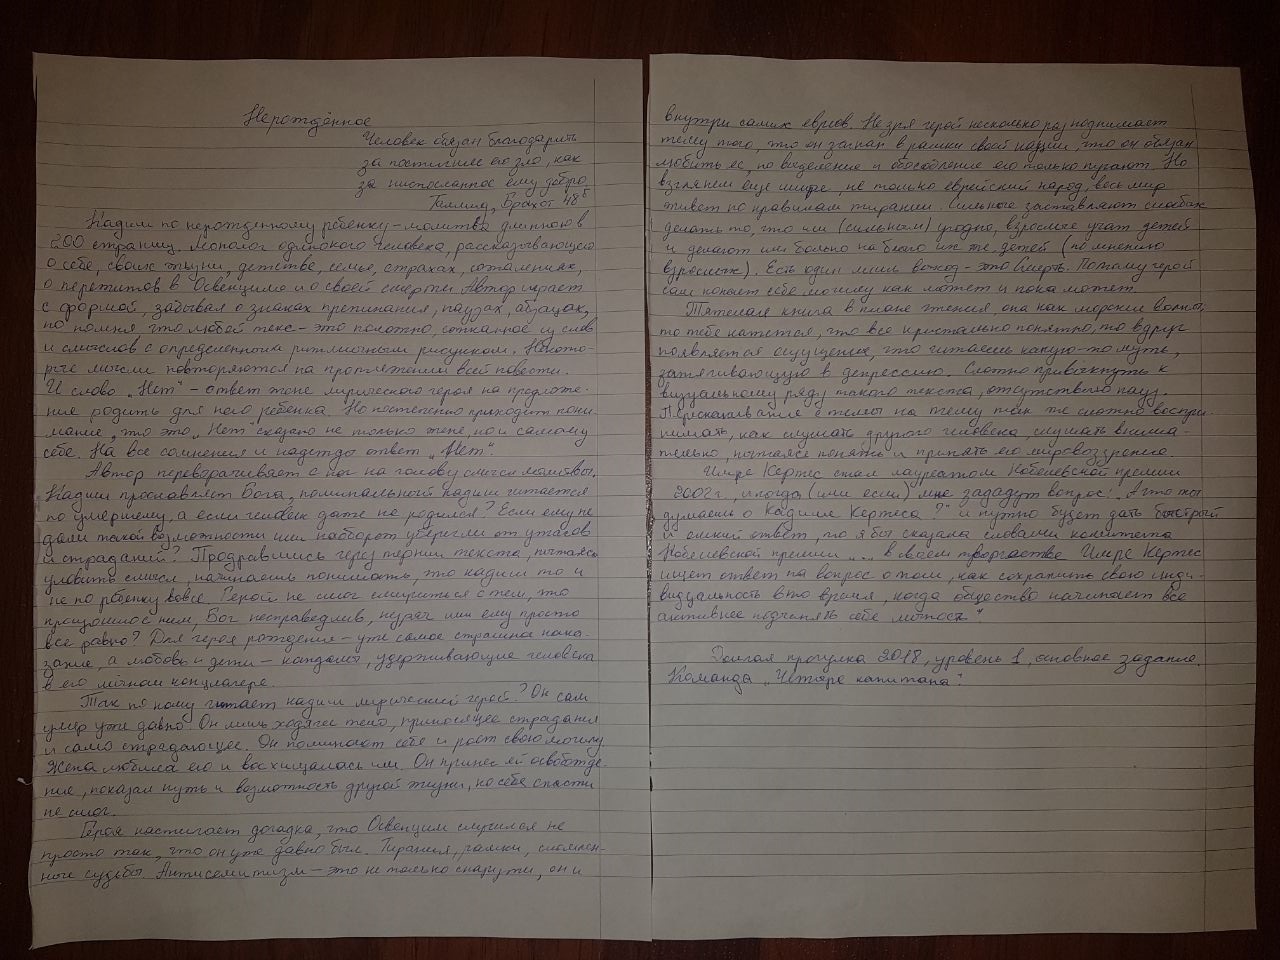 Нерождённое
Человек обязан благодарить
за постигшее его зло, как
за ниспосланное ему добро
Талмуд, Брахот 48б
Кадиш по нерожденному ребенку – молитва длинною в
200 страниц. Монолог одинокого человека, рассказывающего
о себе, своих жизни, детстве, семье, страхах, сожалениях,
о пережитом в Освенциме и о своей смерти. Автор играет
с формой, забывая о знаках препинания, паузах, абзацах,
но помня что любой текс – это полотно, сотканное из слов
и смыслов с определенным ритмичным рисунком. Некото-
рые мысли повторяются на протяжении всей повести.
И слово „Нет" – ответ жене лирического героя на предложе-
ние родить для него ребенка. Но постепенно приходит пони-
мание, что это „Нет" сказано не только жене, но и самому
себе. На все сомнения и надежды ответ „Нет".
Автор переворачивает с ног на голову смысл молитвы.
Кадиш прославляет Бога, поминальный кадиш читается
по умершему, а если человек даже не родился? Если ему не
дали такой возможности или наоборот уберегли от ужасов
и страданий? Продравшись через тернии текста, пытаясь
уловить смысл, начинаешь понимать, что кадиш то и
не по ребенку вовсе. Герой не смог смириться с тем, что
произошло с ним, Бог несправедлив, незряч или ему просто
все равно? Для героя рождение – уже самое страшное нака-
зание, а любовь и дети – кандалы, удерживающие человека
в его личном концлагере.
Так по кому читает кадиш лирический герой? Он сам
умер уже давно. Он лишь ходячее тело, приносящее страдания
и само страдающее. Он поминает себя и роет свою могилу.
Жена любила его и восхищалась им. Он принес ей освобожде-
ние, показал путь и возможность другой жизни, но себя спасти
не смог.
Героя настигает догадка, что Освенцим случился не
просто так, что он уже давно был. Тирания, рамки, сломлен-
ные судьбы. Антисемитизм – это не только снаружи, он и
внутри самих евреев. Не зря герой несколько раз поднимает
тему того, что он загнан в рамки своей нации, что он обязан
любить ее, но выделение и обособление его только пугают. Но
взглянем еще шире, не только еврейский народ, весь мир
живет по правилам тирании. Сильные заставляют слабых
делать то, что им (сильным) угодно, взрослые учат детей
и делают им больно на благо их же, детей (по мнению
взрослых). Есть один лишь выход – это Смерть. Потому герой
сам копает себе могилу как может и пока может.
Тяжелая книга в плане чтения, она как морские волны,
то тебе кажется, что все кристально понятно, то вдруг
появляется ощущение, что читаешь какую-то муть,
затягивающую в депрессию. Сложно привыкнуть к
визуальному ряду такого текста, отсутствию пауз.
Перескакивания с темы на тему так же сложно воспри-
нимать, как слушать другого человека, слушать внима-
тельно, пытаясь понять и принять его мировоззрение.
Имре Кертес стал лауреатом Нобелевской премии
2002 г., и когда (или если) мне зададут вопрос: „А что ты
думаешь о Кадише Кертеса?" и нужно будет дать быстрый
и емкий ответ, то я бы сказала словами комитета
Нобелевской премии „... в своем творчестве Имре Кертес
ищет ответ на вопрос о том, как сохранить свою инди-
видуальность в то время, когда общество начинает все
активнее подчинять себе личность"
Долгая прогулка 2018, уровень 1, основное задание.
Команда „Четыре капитана".